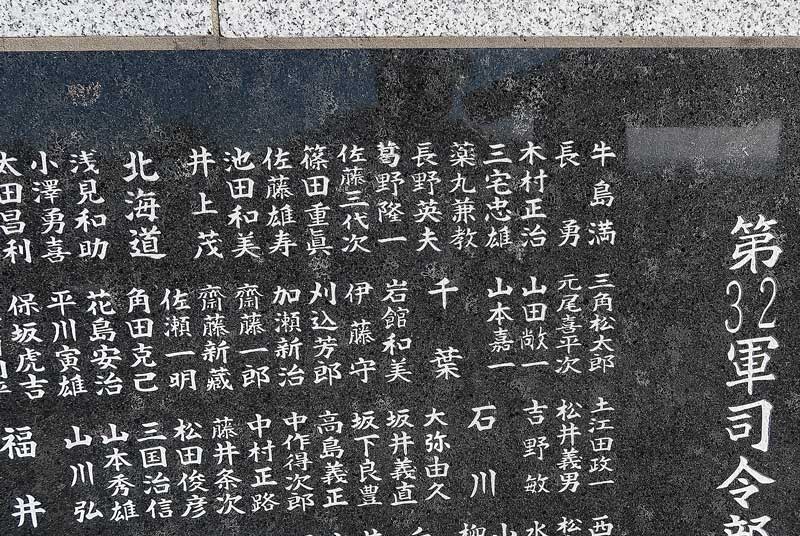 第32軍司令部
牛島満
長勇
木村正治
三宅忠雄
薬丸兼教
長野英夫
葛野隆一
佐藤三代次
篠田重眞
佐藤雄寿
池田和美
井上茂
北海道
浅見和助
小澤勇喜
太田昌利
三角松太郎
元尾喜平次
山田敞一
山本嘉一
千葉
岩館和美
伊藤守
刈込芳郎
加瀬新治
齋藤一郎
齋藤新藏
佐瀬一明
角田克己
花島安治
平川寅雄
保坂虎吉
土江田政一
松井義男
吉野敏
石川
大弥由久
坂井義直
坂下良豊
高島義正
中作得次郎
中村正路
藤井条次
松田俊彦
三国治信
山本秀雄
山川弘
福井
西
松
水
山
柳